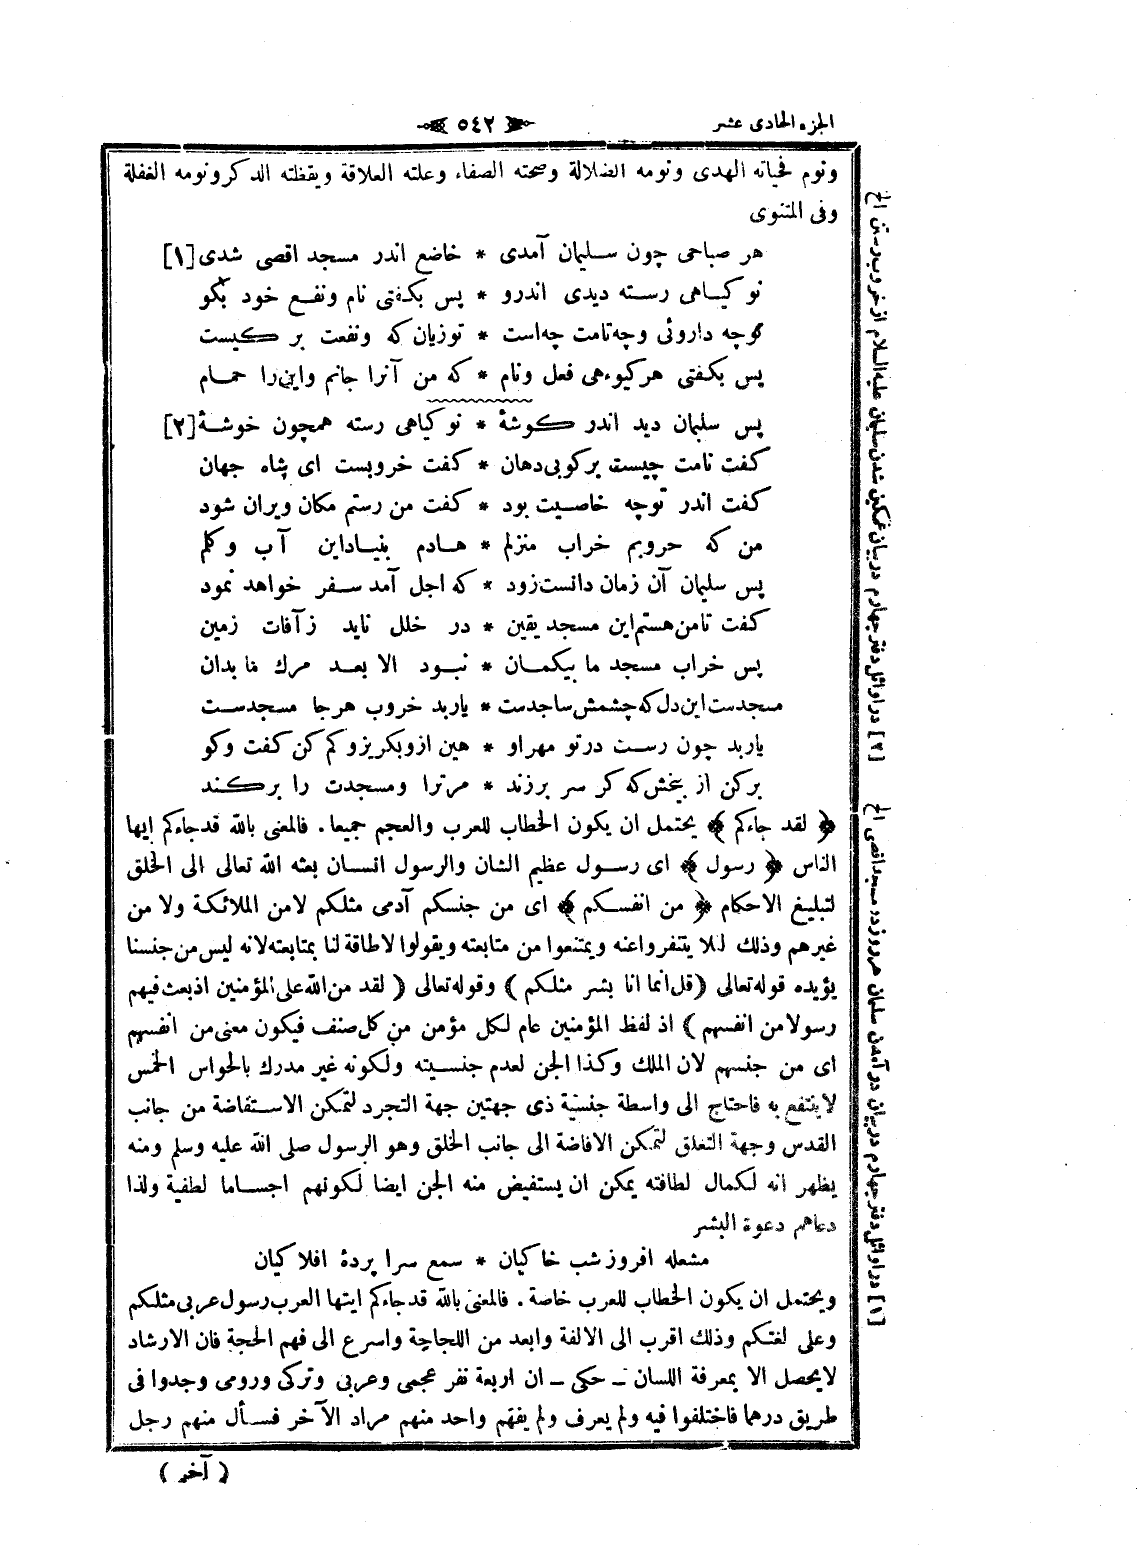 الجزء الحادى عشر
٥٤٢
ونوم فحياته الهدى ونومه الضلالة وصحته الصفاء وعلته العلاقة ويقظته الذكر ونومه الغفلة
وفى المثنوى
هر صباحى چون سليمان آمدى * خاضع اندر مسجد اقصى شدى [١]
نو كياهى رسته ديدى اندرو * پس بكفتى نام ونفع خود بكو
توچه داروئى وچه نامت چه است * توزيان كه ونفعت بر كيست
پس بكفتى هر كيوهى فعل ونام * كه من آنرا جانم واين را حمام
پس سليمان ديد اندر كوشۀ * نو كياهى رسته همچون خوشۀ [٢]
كفت نامت چيست بركوبى دهان * كفت خروبست اى پشاه جهان
كفت اندر توچه خاصيت بود * كفت من رستم مكان ويران شود
من كه خروبم خراب منزلم * هادم بنياد اين آب وكلم
پس سليمان آن زمان دانست زود * كه اجل آمد سفر خواهد نمود
كفت تا من هستم اين مسجد يقين * در خلل نايد ز آفات زمين
پس خراب مسجد ما بيكمان * نبود الا بعد مرك ما بدان
مسجدست اين دل كه چشمش ساجدست * ياربد خروب هرجا مسجدست
ياربد چون رست درتو مهر او * هين ازو بكريزو كم كن كفت وكو
بركن از بيخش كه كر سر برزند * مر ترا ومسجدت را بركند
﴿ لقد جاءكم ﴾ يحتمل ان يكون الخطاب للعرب والعجم جميعا. فالمعنى بالله قد جاءكم ايها
الناس ﴿ رسول ﴾ اى رسول عظيم الشان والرسول انسان بعثه الله تعالى الى الخلق
لتبليغ الاحكام ﴿ من انفسكم ﴾ اى من جنسكم آدمى مثلكم لامن الملائكة ولا من
غيرهم وذلك لئلا يتنفروا عنه ويمتنعوا من متابعته ويقولوا لاطاقة لنا بمتابعته لانه ليس من جنسنا
يؤيده قوله تعالى ( قل انما انا بشر مثلكم ) وقوله تعالى ( لقد من الله على المؤمنين اذ بعث فيهم
رسولا من انفسهم ) اذ لفظ المؤمنين عام لكل مؤمن من كل صنف فيكون معنى من انفسهم
اى من جنسهم لان الملك وكذا الجن لعدم جنسيته ولكونه غير مدرك بالحواس الخمس
لاينتفع به فاحتاج الى واسطة جنسية ذى جهتين جهة التجرد لتمكن الاستفاضة من جانب
القدس وجهة التعلق لتمكن الافاضة الى جانب الخلق وهو الرسول صلى الله عليه وسلم ومنه
يظهر انه لكمال لطافته يمكن ان يستفيض منه الجن ايضا لكونهم اجساما لطفية ولذا
دعاهم دعوة البشر
مشعله افروز شب خاكيان * سمع سرا پردۀ افلاكيان
ويحتمل ان يكون الخطاب للعرب خاصة. فالمعنى بالله قد جاءكم ايتها العرب رسول عربى مثلكم
وعلى لغتكم وذلك اقرب الى الالفة وابعد من اللجاجة واسرع الى فهم الحجة فان الارشاد
لايحصل الا بمعرفة اللسان ـ حكى ـ ان اربعة نفر عجمى وعربى وتركى ورومى وجدوا فى
طريق درهما فاختلفوا فيه ولم يعرف ولم يفهم واحد منهم مراد الآخر فسأل منهم رجل
( آخر )
[١] در اوائل دفتر چهارم در بيان در آمدن سليمان هرروز در مسجد اقصى الخ
[٢] در اوائل دفتر چهارم در بيان غمكين شدن سليمان عليه السلام از خروب رستن الخ